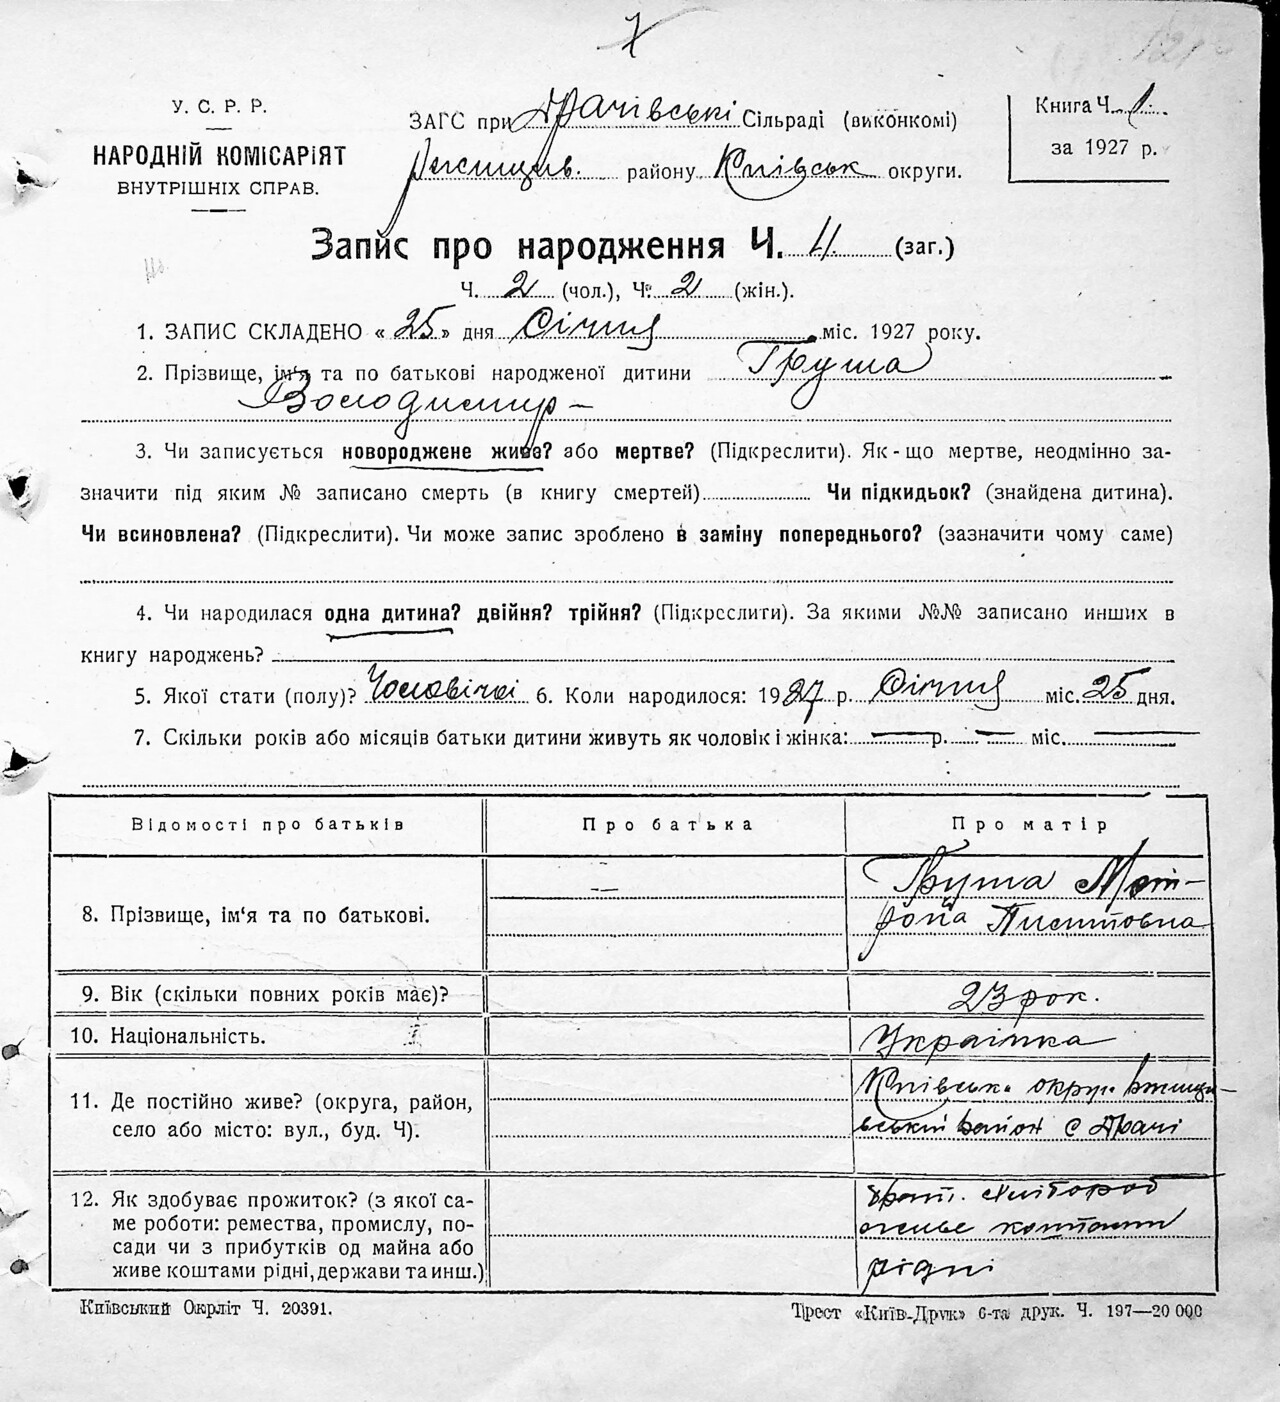 У. С. Р. Р.
НАРОДНІЙ КОМІСАРІЯТ
ВНУТРІШНІХ СПРАВ.
ЗАГС при Драчівські Сільраді (виконкомі)
Ржищів. району Київськ округи.
Книга Ч. 1.
за 1927 р.
Запис про народження Ч. 4. (заг.)
Ч. 2 (чол.), Ч. 2 (жін.).
1. ЗАПИС СКЛАДЕНО « 25 » дня Січня міс. 1927 року.
2. Прізвище, ім'я та по батькові народженої дитини Груша
Володимир –
3. Чи записується новороджене живе? або мертве? (Підкреслити). Як-що мертве, неодмінно за-
значити під яким № записано смерть (в книгу смертей) Чи підкидьок? (знайдена дитина).
Чи всиновлена? (Підкреслити). Чи може запис зроблено в заміну попереднього? (зазначити чому саме)
4. Чи народилася одна дитина? двійня? трійня? (Підкреслити). За якими №№ записано инших в
книгу народжень?
5. Якої стати (полу)? Чоловічої 6. Коли народилося: 1927 р. Січня міс. 25 дня.
7. Скільки років або місяців батьки дитини живуть як чоловік і жінка: — р. — міс. —
Відомості про батьків Про батька Про матір
8. Прізвище, ім'я та по батькові. — Груша Мот-
рона Пилиповна
9. Вік (скільки повних років має)? 23 рок.
10. Національність. Українка
11. Де постійно живе? (округа, район,
село або місто: вул., буд. Ч). Київськ округ Ржищі-
вський район с Драчі
12. Як здобуває прожиток? (з якої са-
ме роботи: ремества, промислу, по-
сади чи з прибутків од майна або
живе коштами рідні, держави та инш.) хлібороб
живе коштами
рідні
Київський Окрліт Ч. 20391.
Трест «Київ-Друк» 6-та друк. Ч. 197—20 000